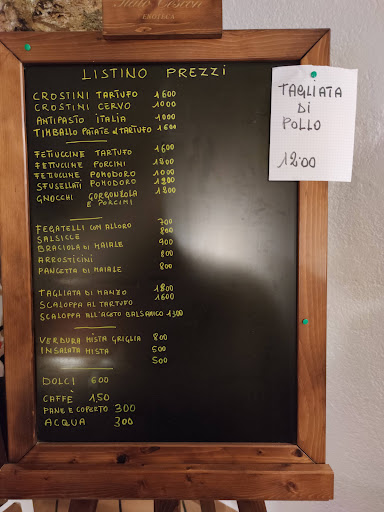 ENOTECA
LISTINO PREZZI
CROSTINI TARTUFO 1600
CROSTINI CERVO 1000
ANTIPASTO ITALIA 1000
TIMBALLO PATATE E TARTUFO 1600
FETTUCCINE TARTUFO 1600
FETTUCCINE PORCINI 1800
FETTUCCINE POMODORO 1000
SFUSELLATI POMODORO 1200
GNOCCHI GORGONZOLA 1800
E PORCINI
FEGATELLI CON ALLORO 700
SALSICCE 800
BRACIOLA DI MAIALE 900
ARROSTICINI 800
PANCETTA DI MAIALE 800
TAGLIATA DI MANZO 1800
SCALOPPA AL TARTUFO 1600
SCALOPPA ALL'ACETO BALSAMICO 1300
VERDURA MISTA GRIGLIA 800
INSALATA MISTA 500
500
DOLCI 600
CAFFÈ 1,50
PANE E COPERTO 300
ACQUA 300
TAGLIATA
DI
POLLO
12:00